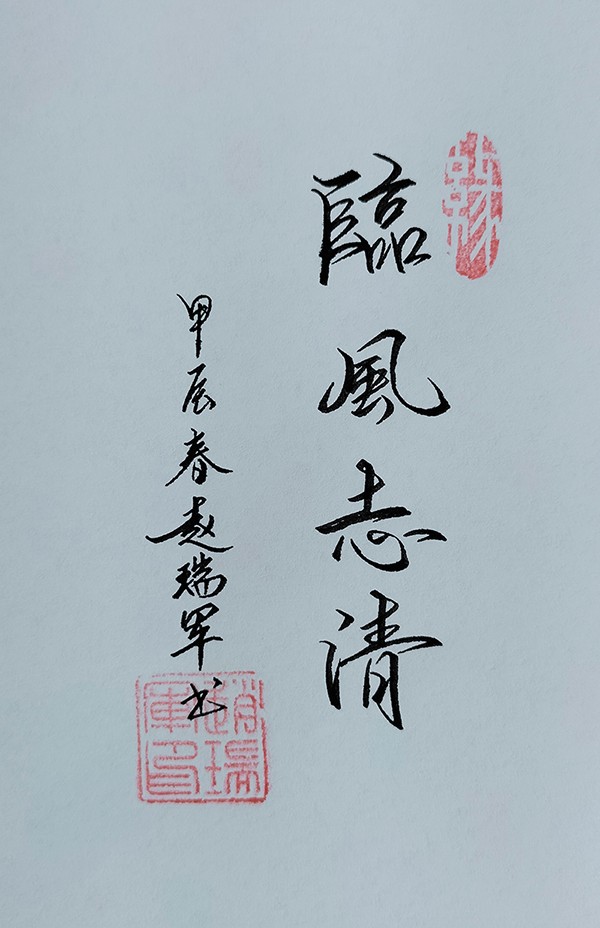 臨風志清
甲辰春趙瑞軍书
趙瑞軍印